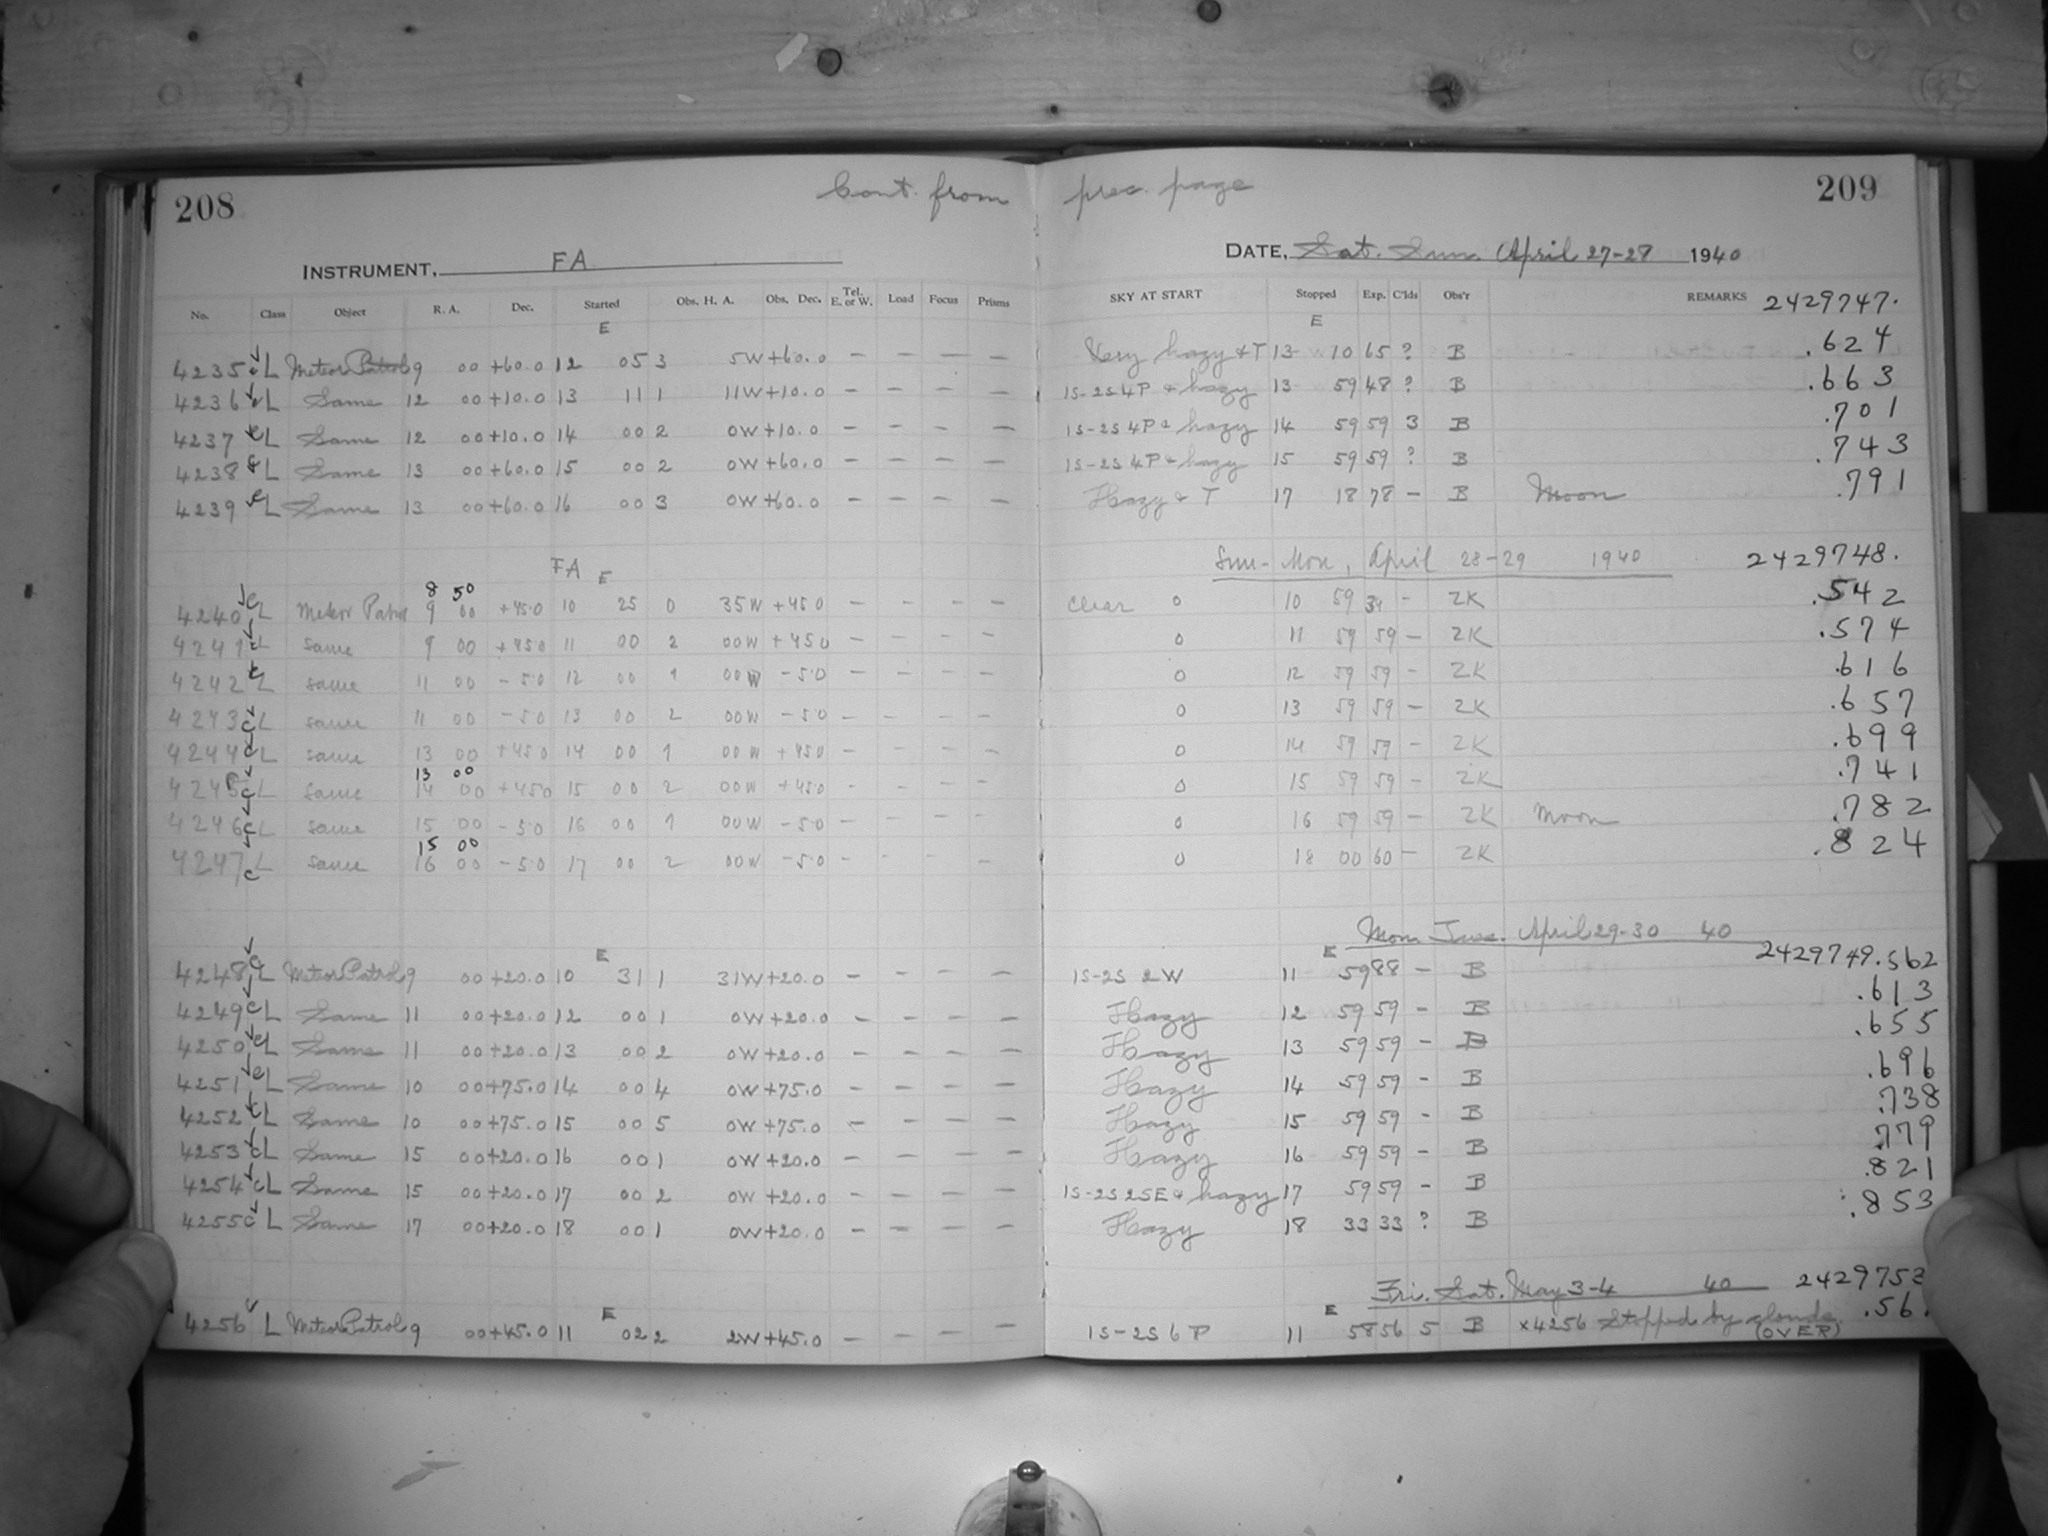 208 Cont. from prec. page 209
INSTRUMENT, FA DATE, Sat. Sun. April 27-28 1940
No. Class Object R. A. Dec. Started Obs. H. A. Obs. Dec. Tel. E. or W. Load Focus Prisms SKY AT START Stopped Exp. C'lds Obs'r REMARKS 2429747.
E E
4235 c L Meteor Patrol 9 00 +60.0 12 05 3 5W +60.0 – – – – Very hazy & T 13 10 65 ? B .624
4236 c L Same 12 00 +10.0 13 11 1 11W +10.0 – – – – 1S-2S 4P & hazy 13 59 48 ? B .663
4237 c L Same 12 00 +10.0 14 00 2 0W +10.0 – – – – 1S-2S 4P & hazy 14 59 59 3 B .701
4238 c L Same 13 00 +60.0 15 00 2 0W +60.0 – – – – 1S-2S 4P & hazy 15 59 59 ? B .743
4239 c L Same 13 00 +60.0 16 00 3 0W +60.0 – – – – Hazy & T 17 18 78 – B Moon .791
FA E Sun - Mon, April 28-29 1940 2429748.
8 50
4240 c L Meteor Patrol 9 00 +45.0 10 25 0 35W +45.0 – – – – clear 0 10 59 34 – ZK .542
4241 c L same 9 00 +45.0 11 00 2 00W +45.0 – – – – 0 11 59 59 – ZK .574
4242 c L same 11 00 -5.0 12 00 1 00W -5.0 – – – – 0 12 59 59 – ZK .616
4243 c L same 11 00 -5.0 13 00 2 00W -5.0 – – – – 0 13 59 59 – ZK .657
4244 c L same 13 00 +45.0 14 00 1 00W +45.0 – – – – 0 14 59 59 – ZK .699
13 00
4245 c L same 14 00 +45.0 15 00 2 00W +45.0 – – – – 0 15 59 59 – ZK .741
4246 c L same 15 00 -5.0 16 00 1 00W -5.0 – – – – 0 16 59 59 – ZK Moon .782
15 00
4247 c L same 16 00 -5.0 17 00 2 00W -5.0 – – – – 0 18 00 60 – ZK .824
E E Mon. Tues. April 29-30 40
4248 c L Meteor Patrol 9 00 +20.0 10 31 1 31W +20.0 – – – – 1S-2S 2W 11 59 88 – B 2429749.562
4249 c L Same 11 00 +20.0 12 00 1 0W +20.0 – – – – Hazy 12 59 59 – B .613
4250 c L Same 11 00 +20.0 13 00 2 0W +20.0 – – – – Hazy 13 59 59 – B .655
4251 c L Same 10 00 +75.0 14 00 4 0W +75.0 – – – – Hazy 14 59 59 – B .696
4252 c L Same 10 00 +75.0 15 00 5 0W +75.0 – – – – Hazy 15 59 59 – B .738
4253 c L Same 15 00 +20.0 16 00 1 0W +20.0 – – – – Hazy 16 59 59 – B .779
4254 c L Same 15 00 +20.0 17 00 2 0W +20.0 – – – – 1S-2S 2SE & hazy 17 59 59 – B .821
4255 c L Same 17 00 +20.0 18 00 1 0W +20.0 – – – – Hazy 18 33 33 ? B .853
E E Fri. Sat. May 3-4 40 2429753
4256 L Meteor Patrol 9 00 +45.0 11 02 2 2W +45.0 – – – – 1S-2S 6P 11 58 56 5 B x4256 Stopped by clouds .56
(OVER)